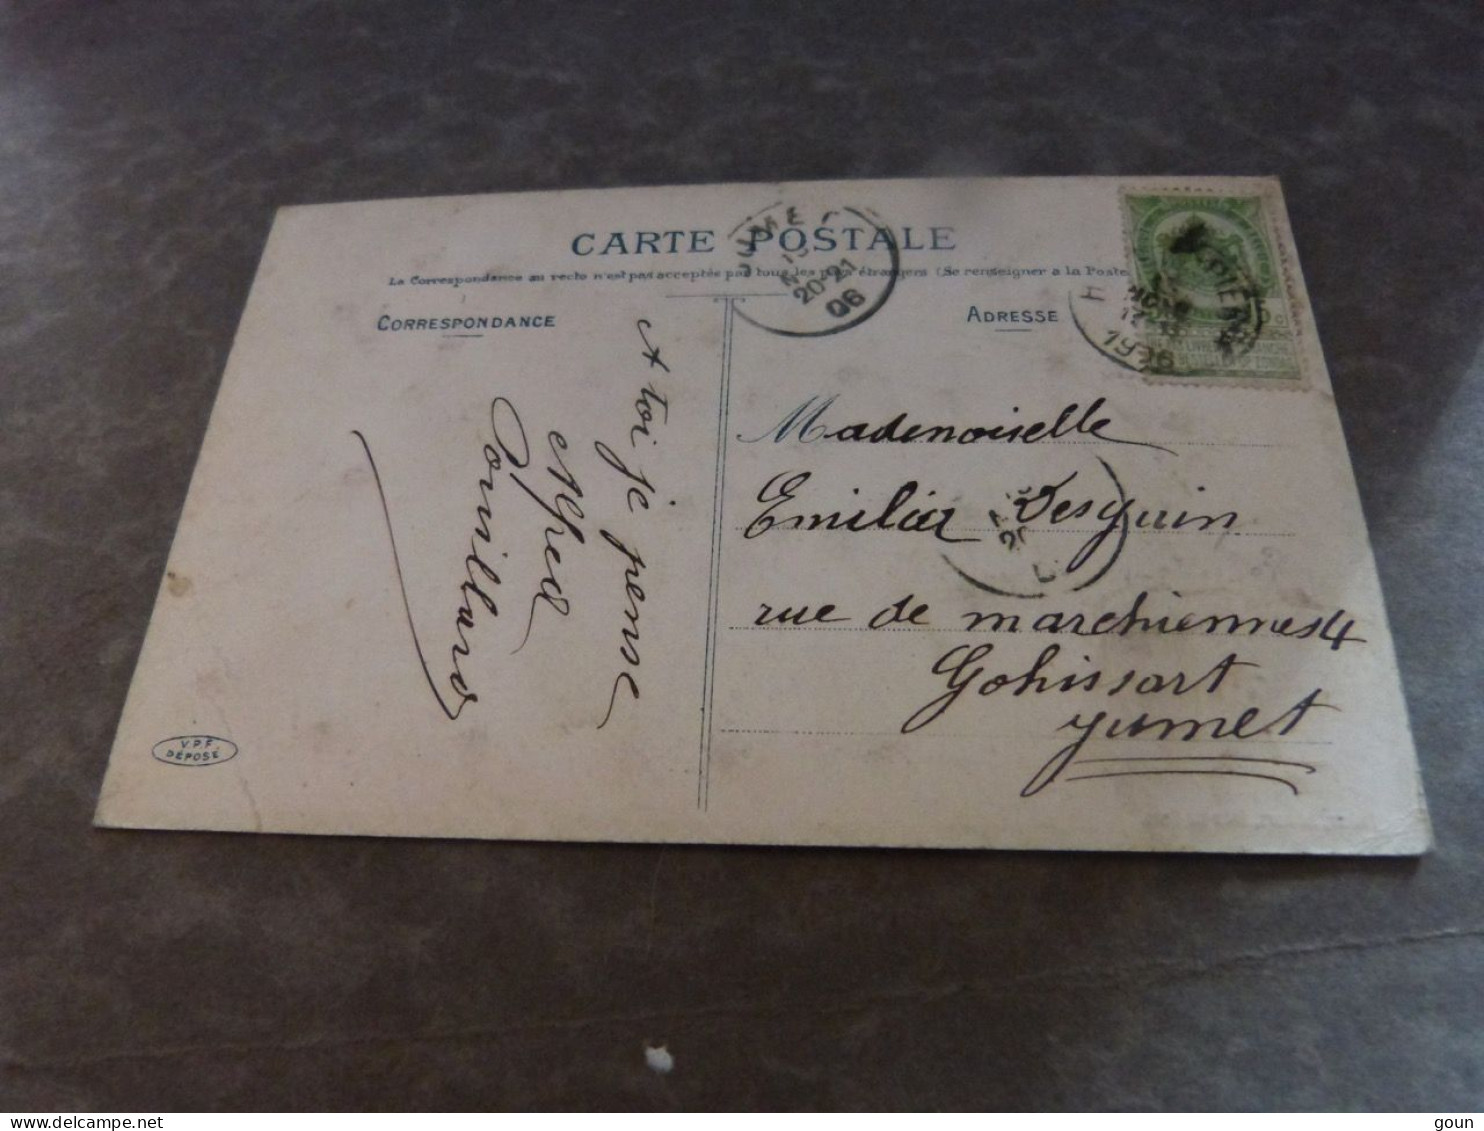 CARTE POSTALE
La Correspondance au recto n'est pas acceptée par tous les pays étrangers (Se renseigner a la Poste
CORRESPONDANCE
ADRESSE
A toi je pense
Alfred
Pouillard
Mademoiselle
Emilia Desguin
rue de marchiennes 4
Gohissart
Jumet
JUMET
20-21
06
1906
5 c
V.P.F.
DÉPOSÉ
goun